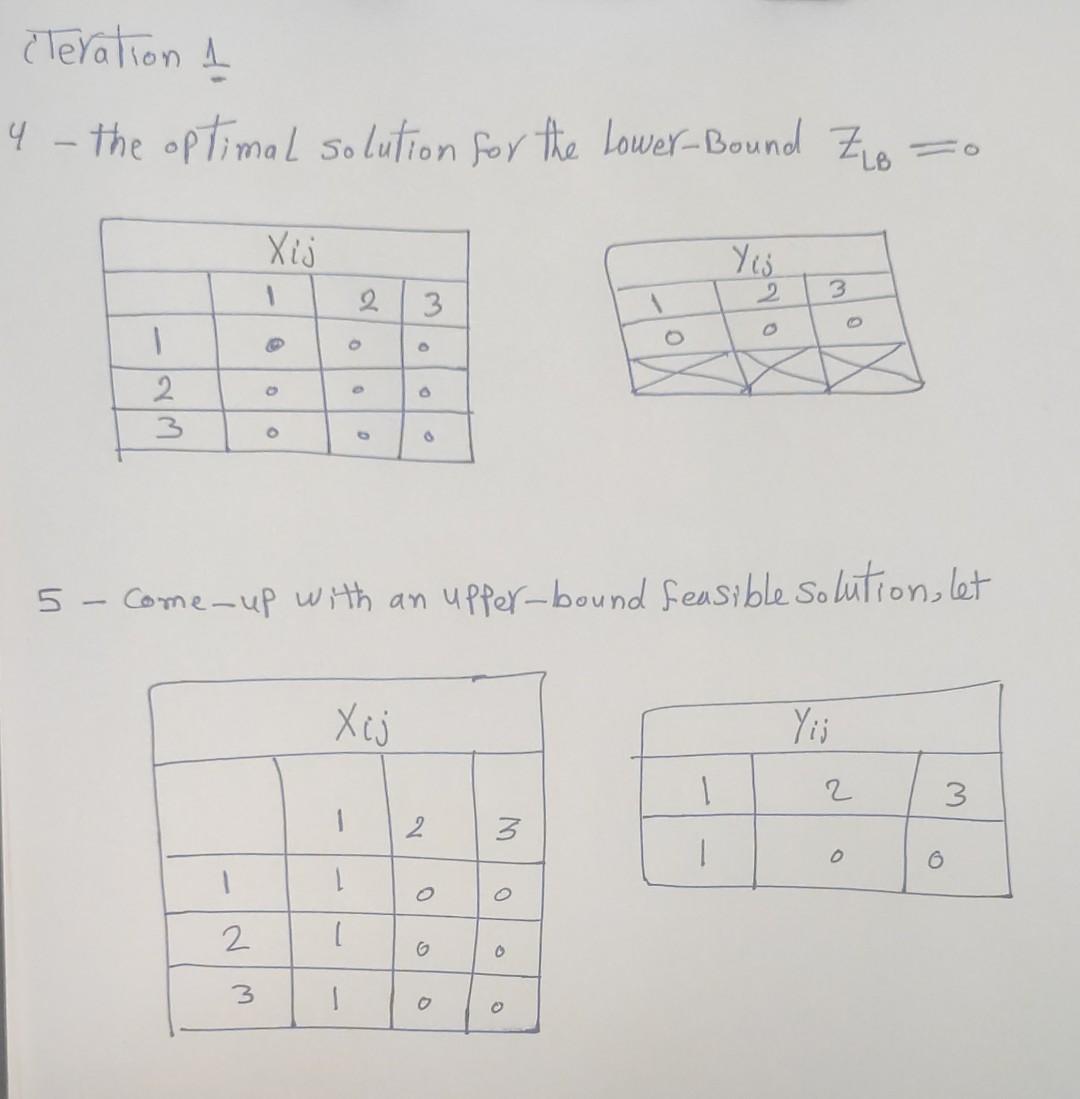 iteration 1
4 - the optimal solution for the Lower-Bound Z_LB = 0
Xij
1 2 3
1 0 0 0
2 0 0 0
3 0 0 0
Yij
1 2 3
0 0 0
5 - Come-up with an upper-bound feasible solution, let
Xij
1 2 3
1 1 0 0
2 1 0 0
3 1 0 0
Yij
1 2 3
1 0 0